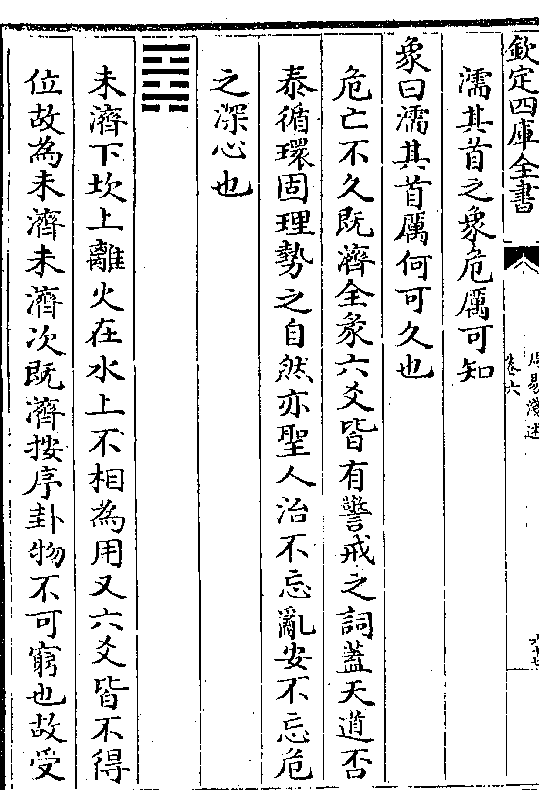 欽定四庫全書
周易淺述
卷六
濡其首之象危厲可知
象曰濡其首厲何可久也
危亡不久既濟全彖六爻皆有警戒之詞蓋天道否
泰循環固理勢之自然亦聖人治不忘亂安不忘危
之深心也
未濟下坎上離火在水上不相為用又六爻皆不得
位故為未濟未濟次既濟按序卦物不可窮也故受